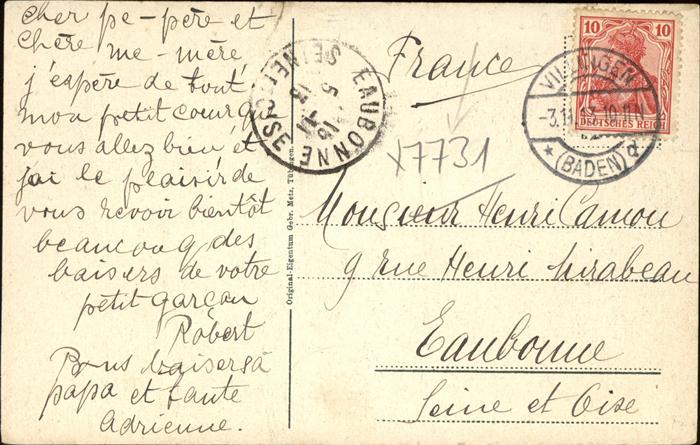 cher pe-père et
chère me-mère,
j'espère de tout
mon petit coeur que
vous allez bien et
jai le plaisir de
vous revoir bientôt
beaucoug des
baisers de votre
petit garçon
Robert
Bons baisers à
papa et tante
Adrienne.
Original-Eigentum Gebr. Metz, Tübingen.
EAUBONNE
SEINE ET OISE
France
x7731
10 10
DEUTSCHES REICH
VILLINGEN
-3.11.13.10-11N
* (BADEN) d
Monsieur Henri Camou
9 rue Henri Mirabeau
Eaubonne
Seine et Oise